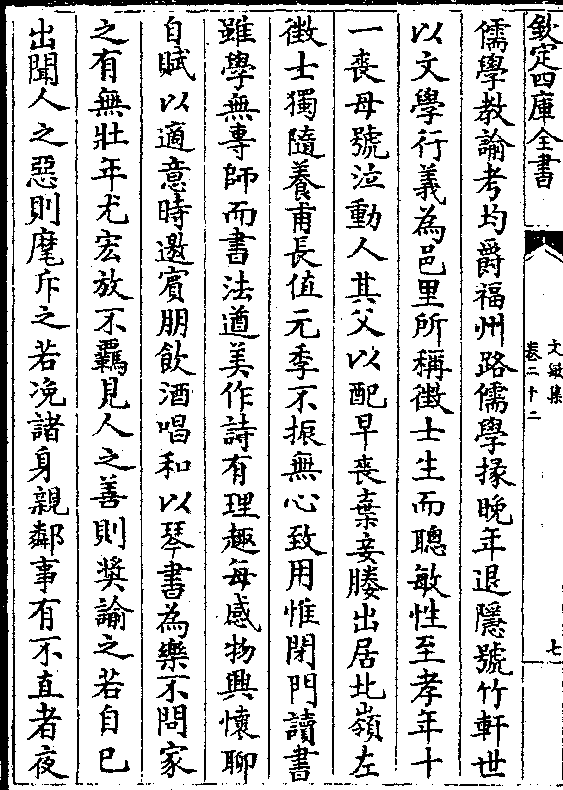 欽定四庫全書
文敏集
卷二十二
七
儒學教諭考均爵福州路儒學掾晚年退隱號竹軒世
以文學行義為邑里所稱徴士生而聰敏性至孝年十
一喪母號泣動人其父以配早喪棄妾媵出居北嶺左
徴士獨隨養甫長值元季不振無心致用惟閉門讀書
雖學無專師而書法遒美作詩有理趣每感物興懷聊
自賦以適意時邀賓朋飲酒唱和以琴書為樂不問家
之有無壯年尤宏放不羈見人之善則奬論之若自已
出聞人之惡則麾斥之若浼諸身親鄰事有不直者夜